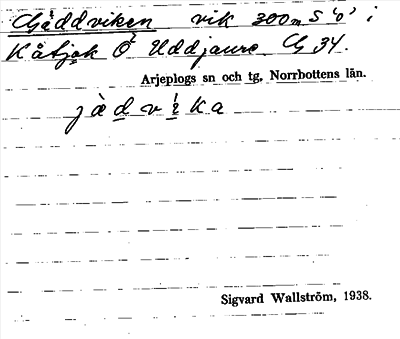 Gäddviken vik 300m S "ö" i
Kåtjok Ö Uddjaure. G 34.
Arjeplogs sn och tg, Norrbottens län.
jàdvika
Sigvard Wallström, 1938.